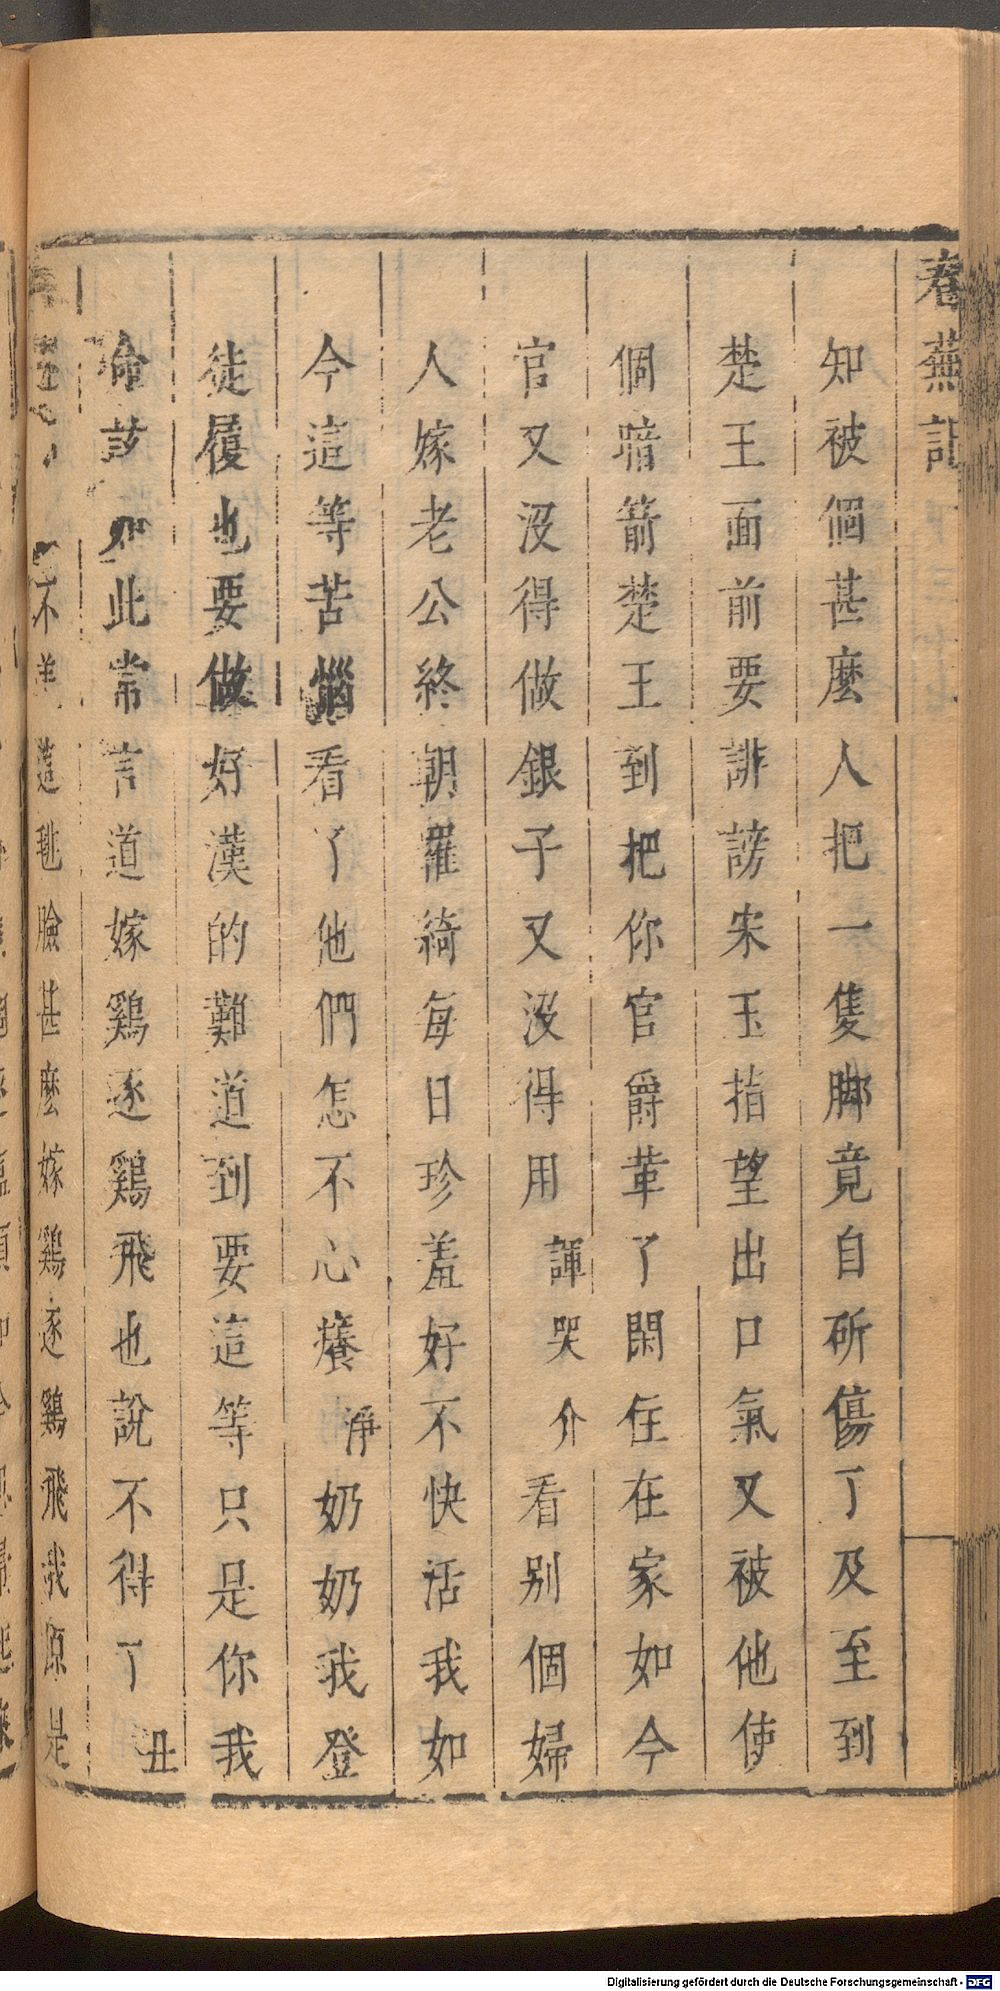 春蕪記
知被個甚麽人把一隻脚竟自斫傷了及至到
楚王面前要誹謗宋玉指望出口氣又被他使
個暗箭楚王到把你官爵革了閑住在家如今
官又沒得做銀子又沒得用諢哭介看別個婦
人嫁老公終朝羅綺每日珍羞好不快活我如
今這等苦惱看了他們怎不心癢淨奶奶我登
徒履也要做好漢的難道到要這等只是你我
命該如此常言道嫁鷄逐鷄飛也說不得了丑
不羊這毴臉甚麽嫁鷄逐鷄飛我原是
Digitalisierung gefördert durch die Deutsche Forschungsgemeinschaft - DFG